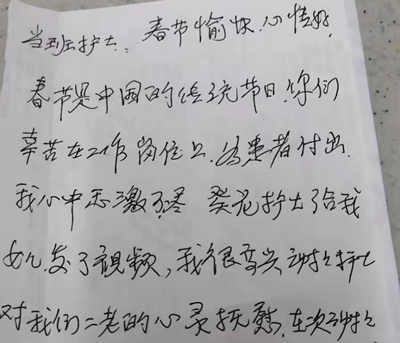 当班护士: 春节愉快心情好,
春节是中国的传统节日.你们
辛苦在工作岗位上,为患者付出.
我心中感激不尽 葵花护士给我
女儿发了视频,我很高兴谢谢护士
对我们二老的心灵抚慰.在次谢谢